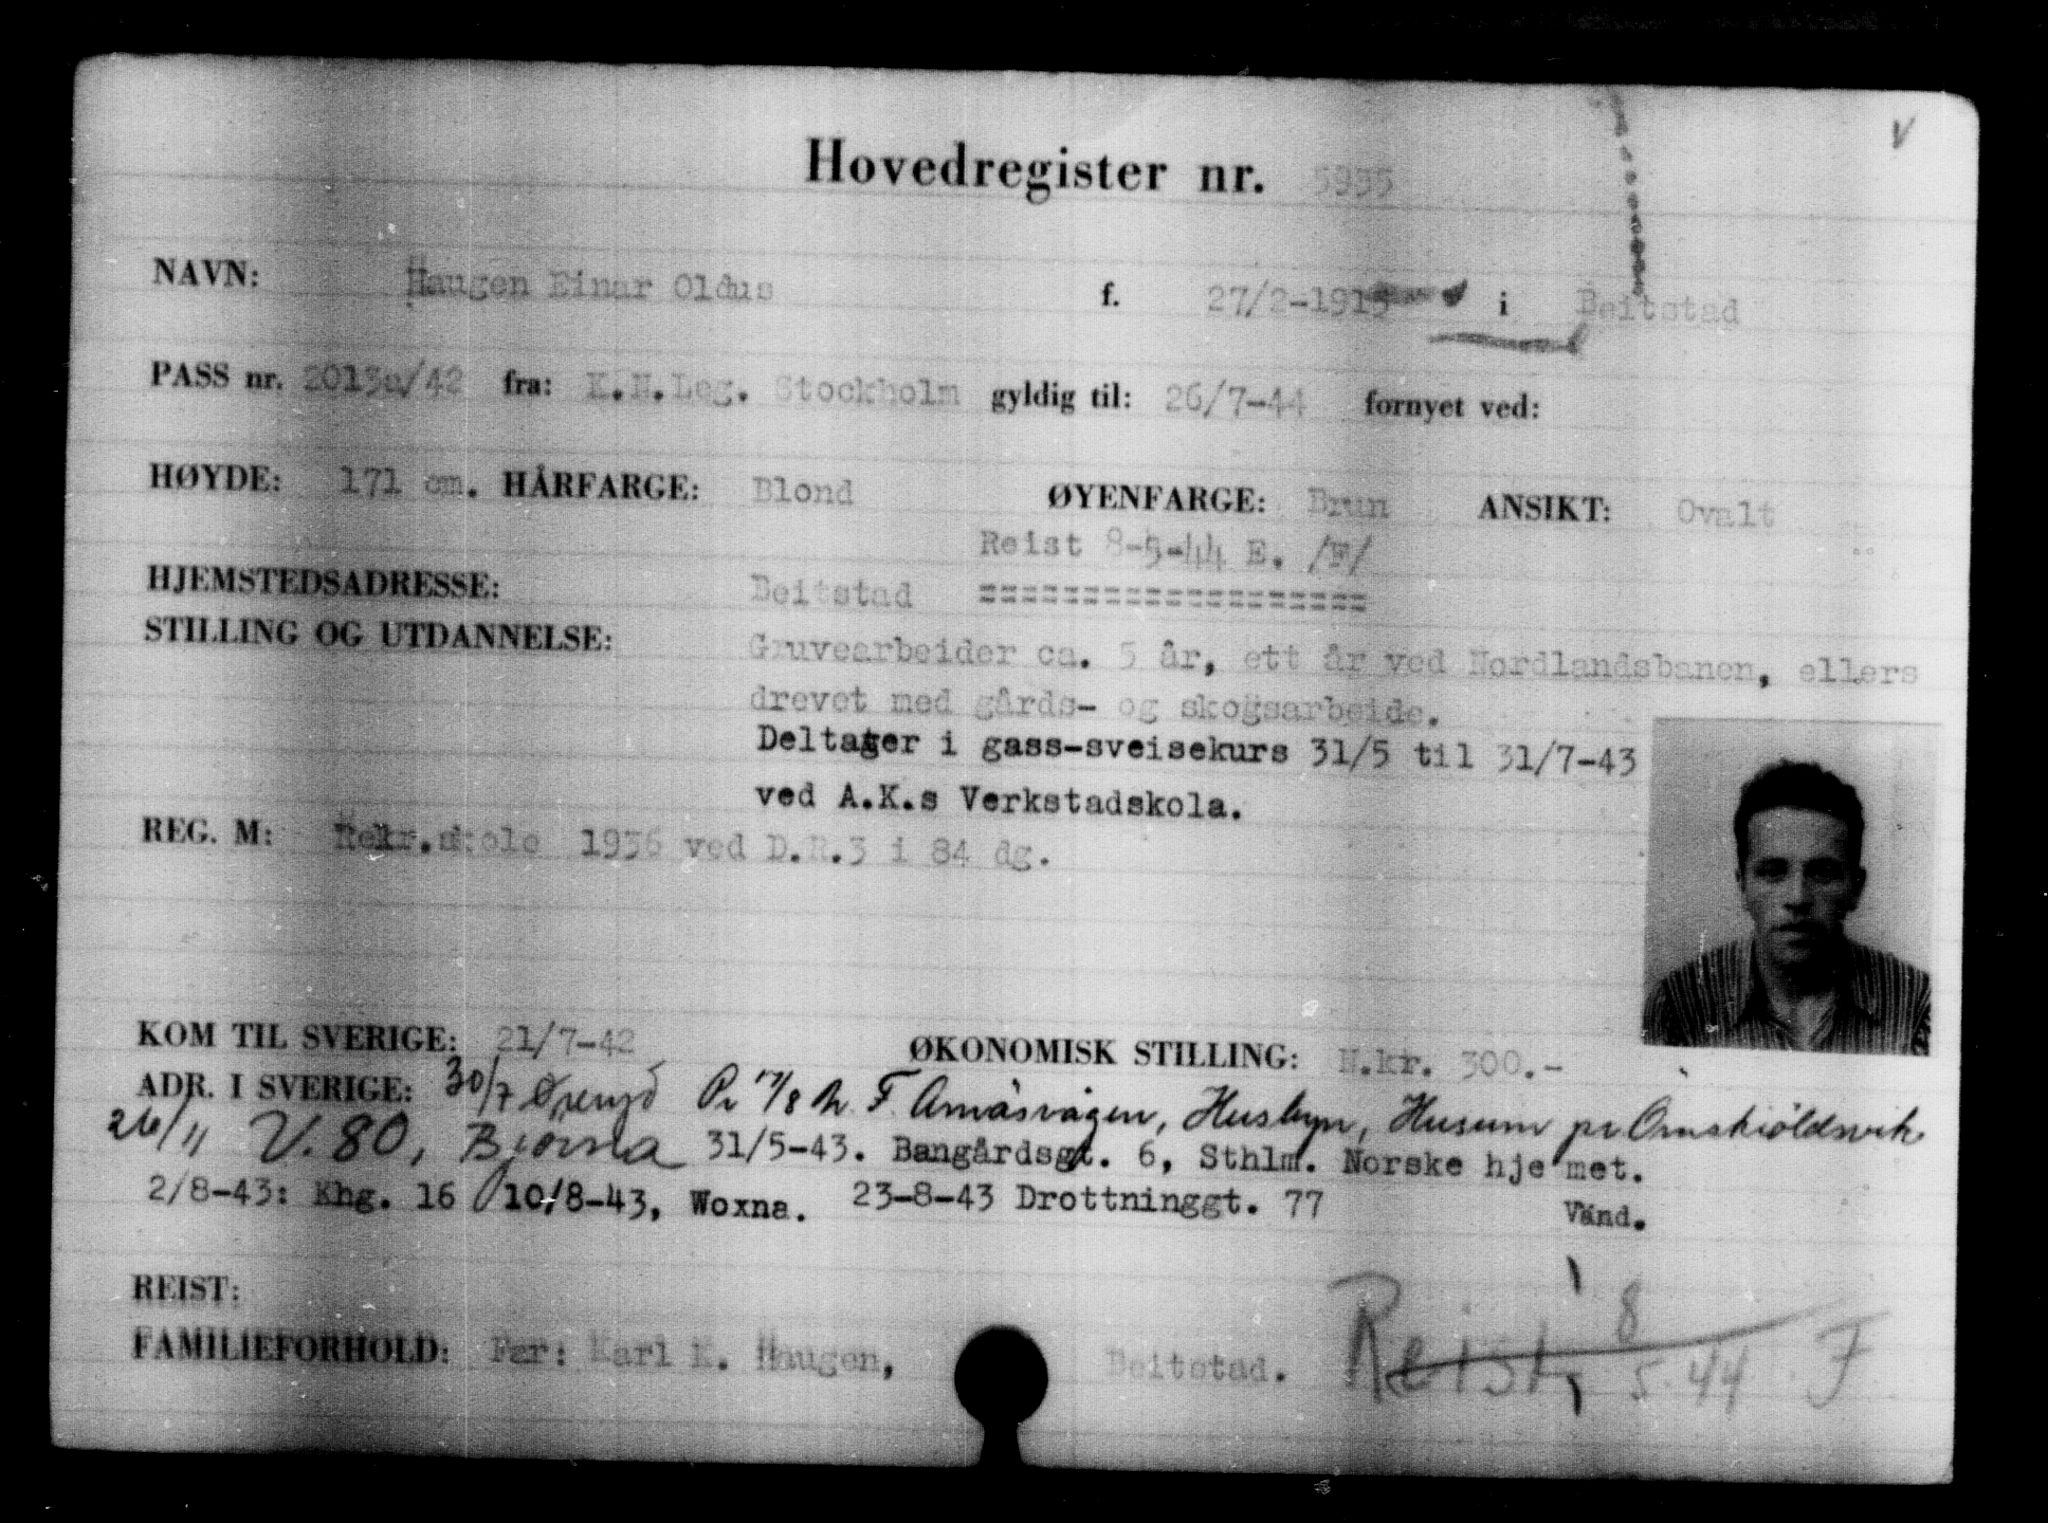 V
Hovedregister nr. 5935
NAVN: Haugen Einar Oldus f. 27/2-1915 i Beitstad
PASS nr. 2013a/42 fra: K.N.Leg. Stockholm gyldig til: 26/7-44 fornyet ved:
HØYDE: 171 cm. HÅRFARGE: Blond ØYENFARGE: Brun ANSIKT: Ovalt
Reist 8-5-44 E. /F/
HJEMSTEDSADRESSE: Beitstad ===================
STILLING OG UTDANNELSE: Gruvearbeider ca. 5 år, ett år ved Nordlandsbanen, ellers
drevet med gårds- og skogsarbeide.
Deltager i gass-sveisekurs 31/5 til 31/7-43
ved A.K.s Verkstadskola.
REG. M: Rekr.skole 1936 ved D.R.3 i 84 dg.
KOM TIL SVERIGE: 21/7-42 ØKONOMISK STILLING: N.kr. 300.-
ADR. I SVERIGE: 30/7 Öreryd 17/8 F. Husbyn, Husum pr Örnskiöldsvik
26/11 V. 80, Bjorna 31/5-43. Bangårdsgt. 6, Sthlm. Norske hje met.
2/8-43: Khg. 16 10/8-43, Woxna. 23-8-43 Drottninggt. 77 Vänd.
REIST:
FAMILIEFORHOLD: Far: Karl K. Haugen, Beitstad. Reist 8/5.44 F